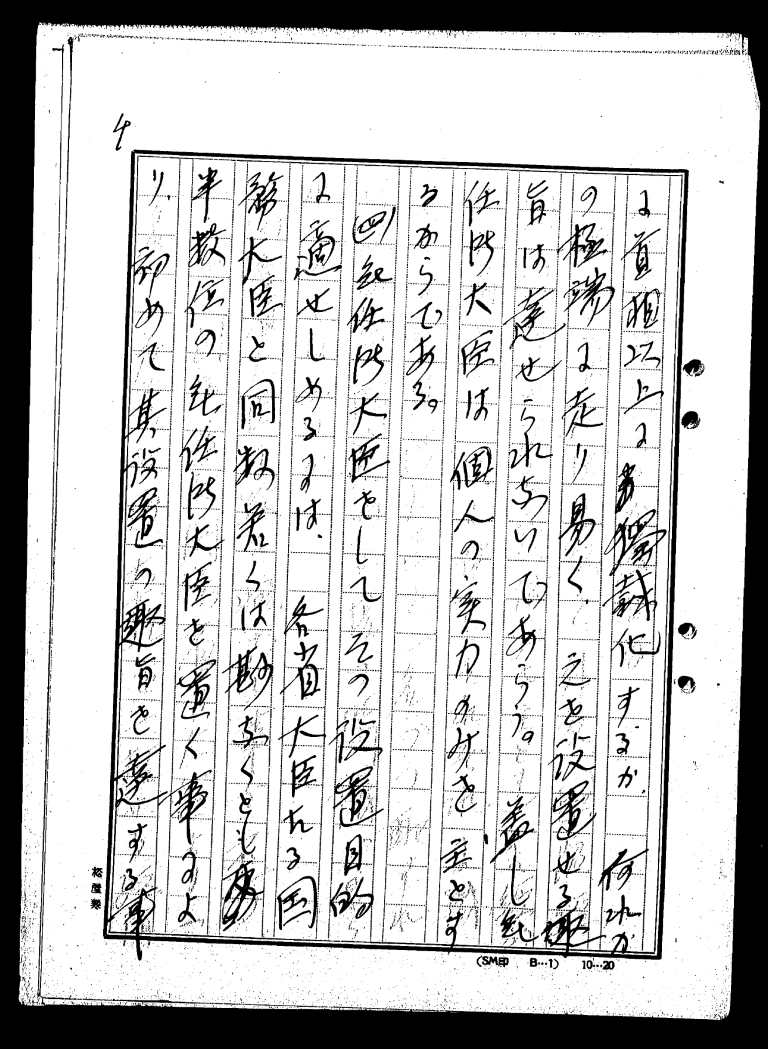 4
に首相以上に獨裁化するか、何れか
の極端に走り易く、之を設置せる趣
旨は達せられないであらう。蓋し無
任所大臣は個人の実力のみを主とす
るからである。
(四)無任所大臣をして その設置目的
に適せしめるには、各省大臣たる国
務大臣と同数若くは尠なくとも
半数位の無任所大臣を置く事によ
り、初めて其設置の趣旨を達する事
(SM印 B…1) 10…20